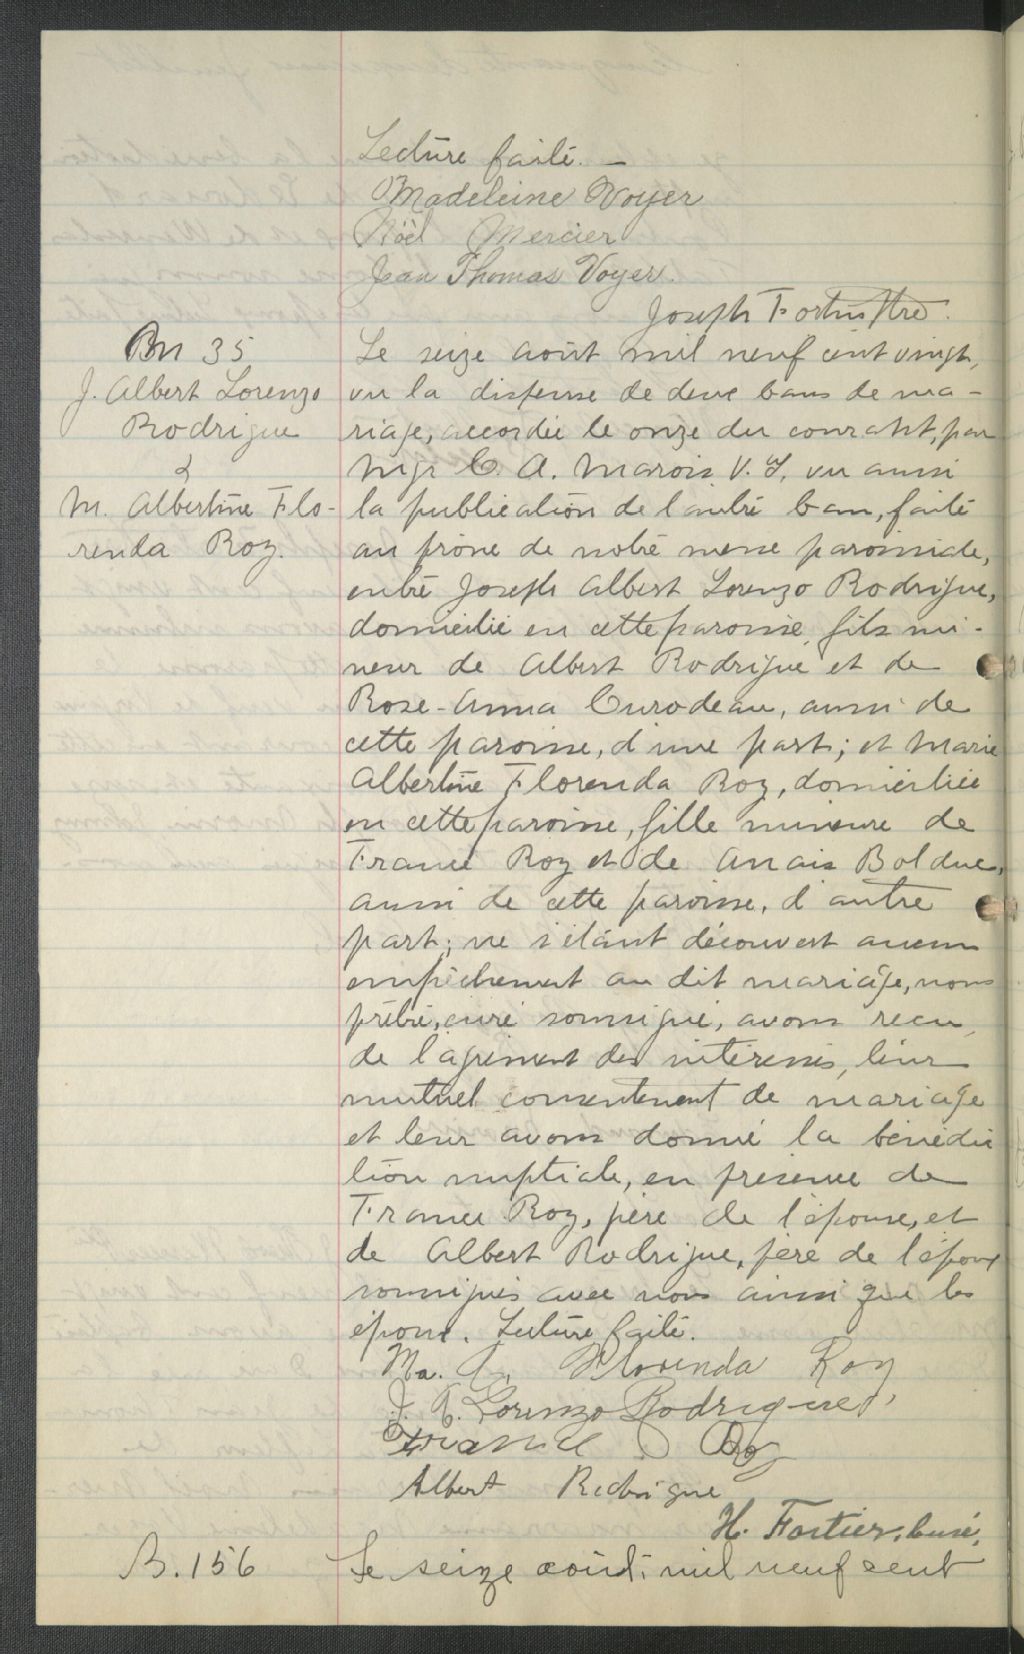 Lecture faite. —
Madeleine Voyer
Noël Mercier
Jean Thomas Voyer.
Joseph Fortier Ptre.
Bn 35
J. Albert Lorenzo
Rodrigue
&
M. Albertine Flo-
renda Roy.
Le seize août mil neuf cent vingt,
vu la dispense de deux bans de ma-
riage, accordée le onze du courant, par
Mgr C. A. Marois V. G, vu aussi
la publication de l'autre ban, faite
au prône de notre messe paroissiale,
entre Joseph Albert Lorenzo Rodrigue,
domicilié en cette paroisse, fils mi-
neur de Albert Rodrigue et de
Rose-Anna Curodeau, aussi de
cette paroisse, d'une part; et Marie
Albertine Florenda Roy, domiciliée
en cette paroisse, fille mineure de
France Roy et de Anaïs Bolduc,
aussi de cette paroisse, d'autre
part; ne s'étant découvert aucun
empêchement au dit mariage, nous
prêtre, curé soussigné, avons reçu,
de l'agrément des intéressés, leur
mutuel consentement de mariage
et leur avons donné la bénédic
tion nuptiale, en présence de
France Roy, père de l'épouse, et
de Albert Rodrigue, père de l'époux
soussignés avec nous ainsi que les
époux. Lecture faite.
Ma. A. Florenda Roy
J. A. Lorenzo Rodrigue
France Roy
Albert Rodrigue
H. Fortier, Curé.
B. 156
Le seize août mil neuf cent